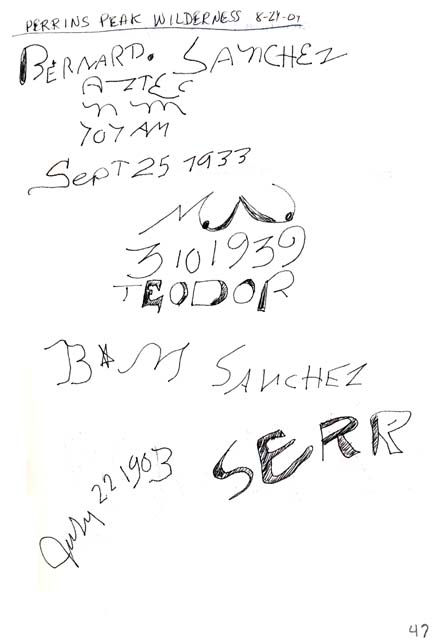 PERRINS PEAK WILDERNESS 8-24-07
BERNARD. SANCHEZ
AZTEC
N M
707 AM
SEPT 25 1933
3 10 1939
TEODOR
B M SANCHEZ
SERR
July 22 1903
47